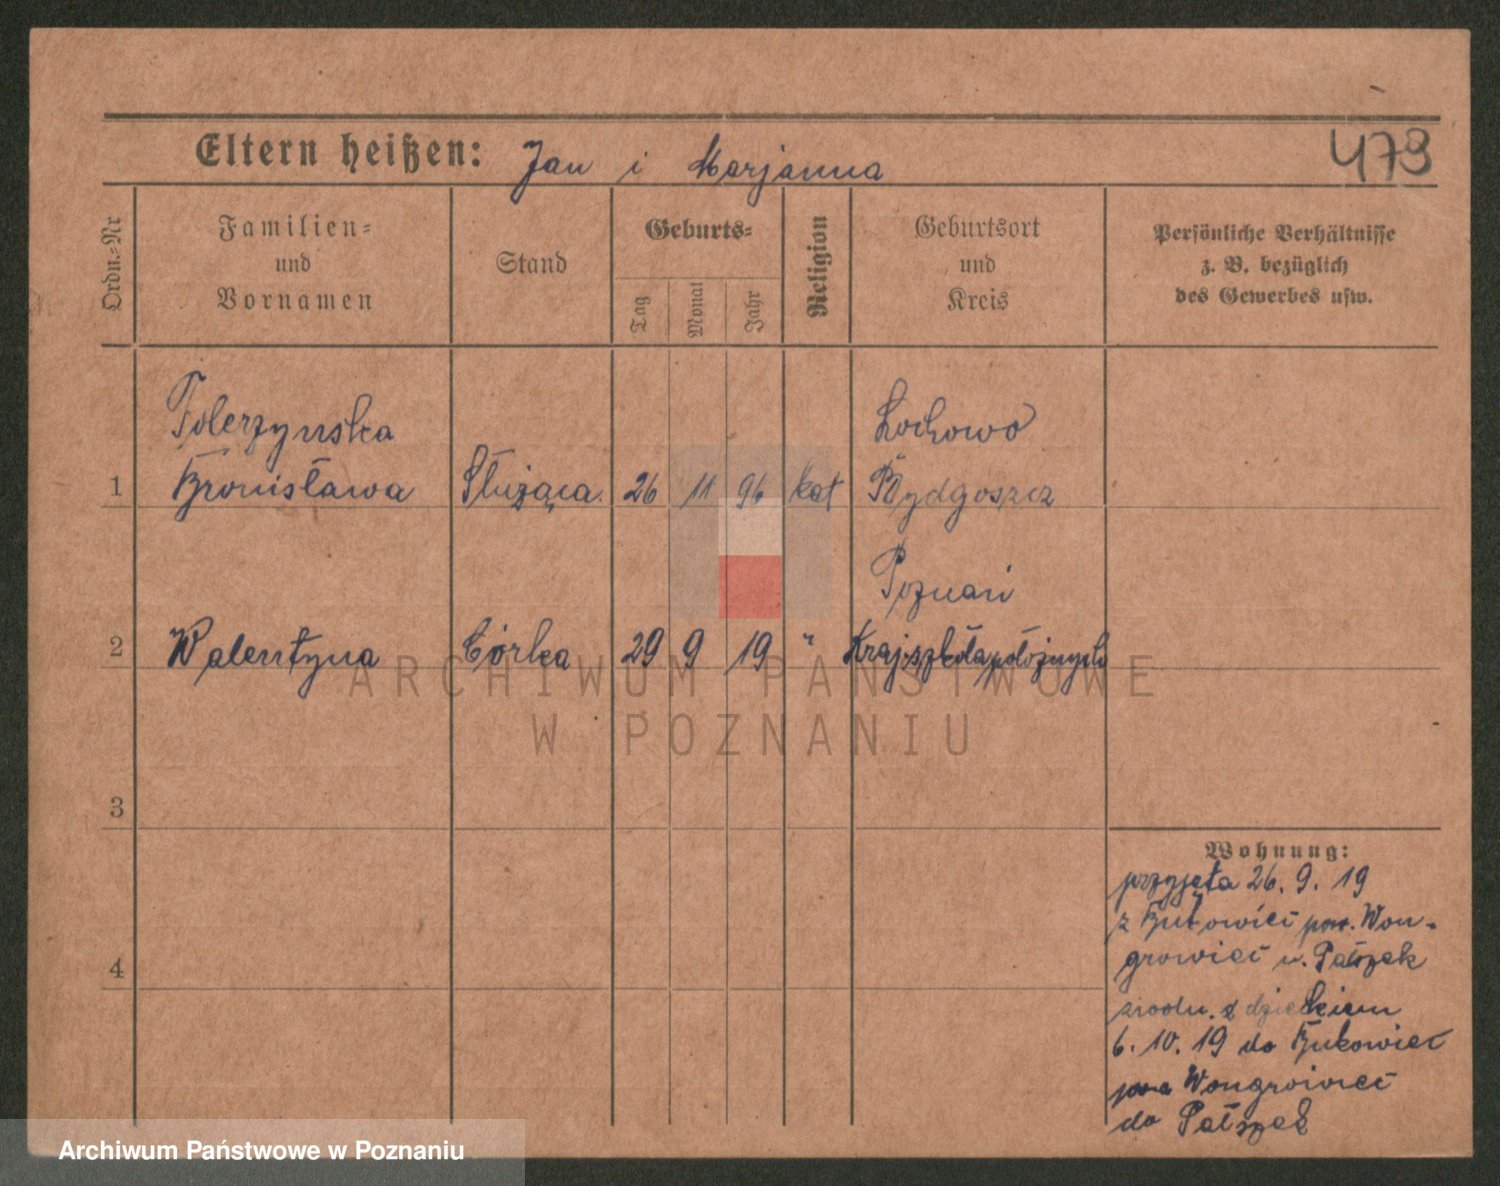 473
Eltern heißen: Jan i Marjanna
Ordn.-Nr
Familien-
und
Vornamen
Stand
Geburts-
Tag
Monat
Jahr
Religion
Geburtsort
und
Kreis
Persönliche Verhältnisse
z. B. bezüglich
des Gewerbes usw.
Tolerzynska
1 Bronisława Służąca. 26 11 96 kat
Lochowo
Bydgoszcz
2 Walentyna Córka 29 9 19 "
Poznań
Kraj. szkoła położnych
3
4
Wohnung:
przyjęta 26. 9. 19
z Bukowiec pow. Won-
growiec u. Pałszek
z dzieckiem
6. 10. 19 do Bukowiec
pow Wongrowiec
do Pałszek
ARCHIWUM PAŃSTWOWE
W POZNANIU
Archiwum Państwowe w Poznaniu